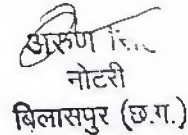 अरुण
नोटरी
बिलासपुर (छ.ग.)